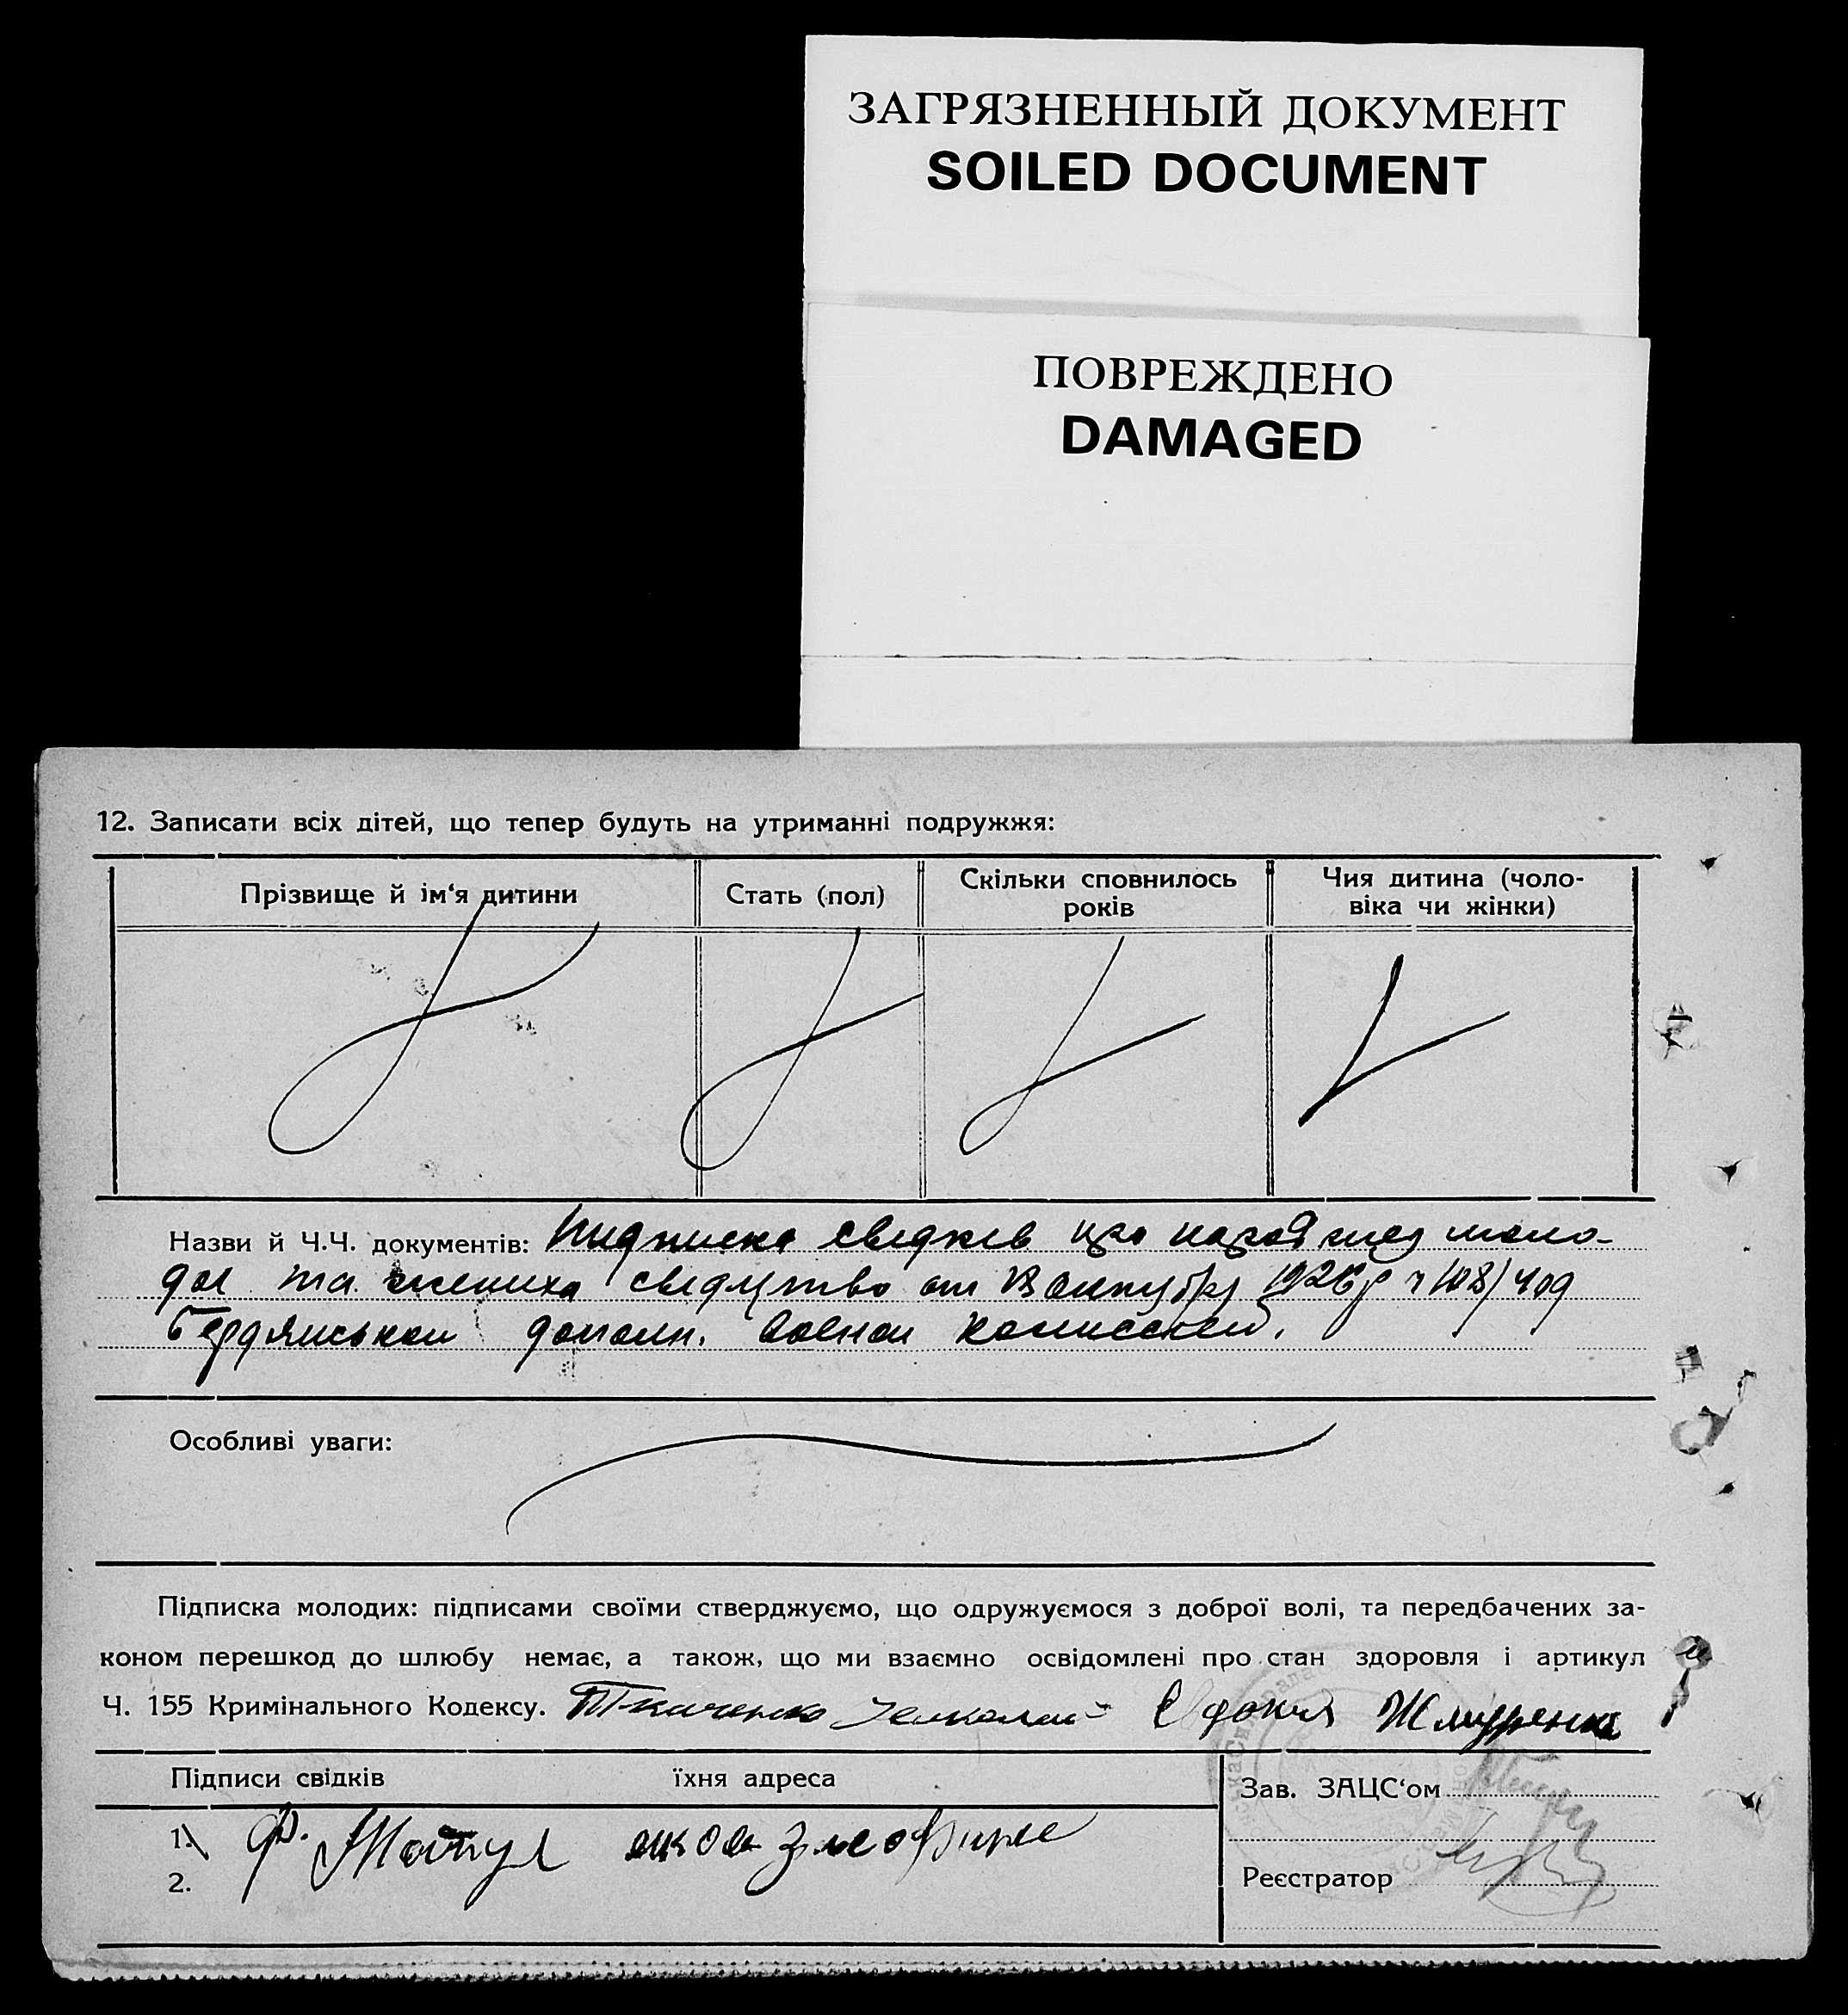 ЗАГРЯЗНЕННЫЙ ДОКУМЕНТ
SOILED DOCUMENT
ПОВРЕЖДЕНО
DAMAGED
12. Записати всіх дітей, що тепер будуть на утриманні подружжя:
Прізвище й ім‘я дитини
Стать (пол)
Скільки сповнилось
років
Чия дитина (чоло-
віка чи жінки)
Назви й Ч.Ч. документів: свідків про моло-
дої та жениха от 1926 р
Бердянськой дополн. военой комиссией.
Особливі уваги:
Підписка молодих: підписами своїми стверджуємо, що одружуємося з доброї волі, та передбачених за-
коном перешкод до шлюбу немає, а також, що ми взаємно освідомлені про стан здоровля і артикул
Ч. 155 Кримінального Кодексу. Ткаченко Николай Евдокия Жмуренко
Підписи свідків їхня адреса
Зав. ЗАЦС‘ом
1. Ф.
2.
Реєстратор